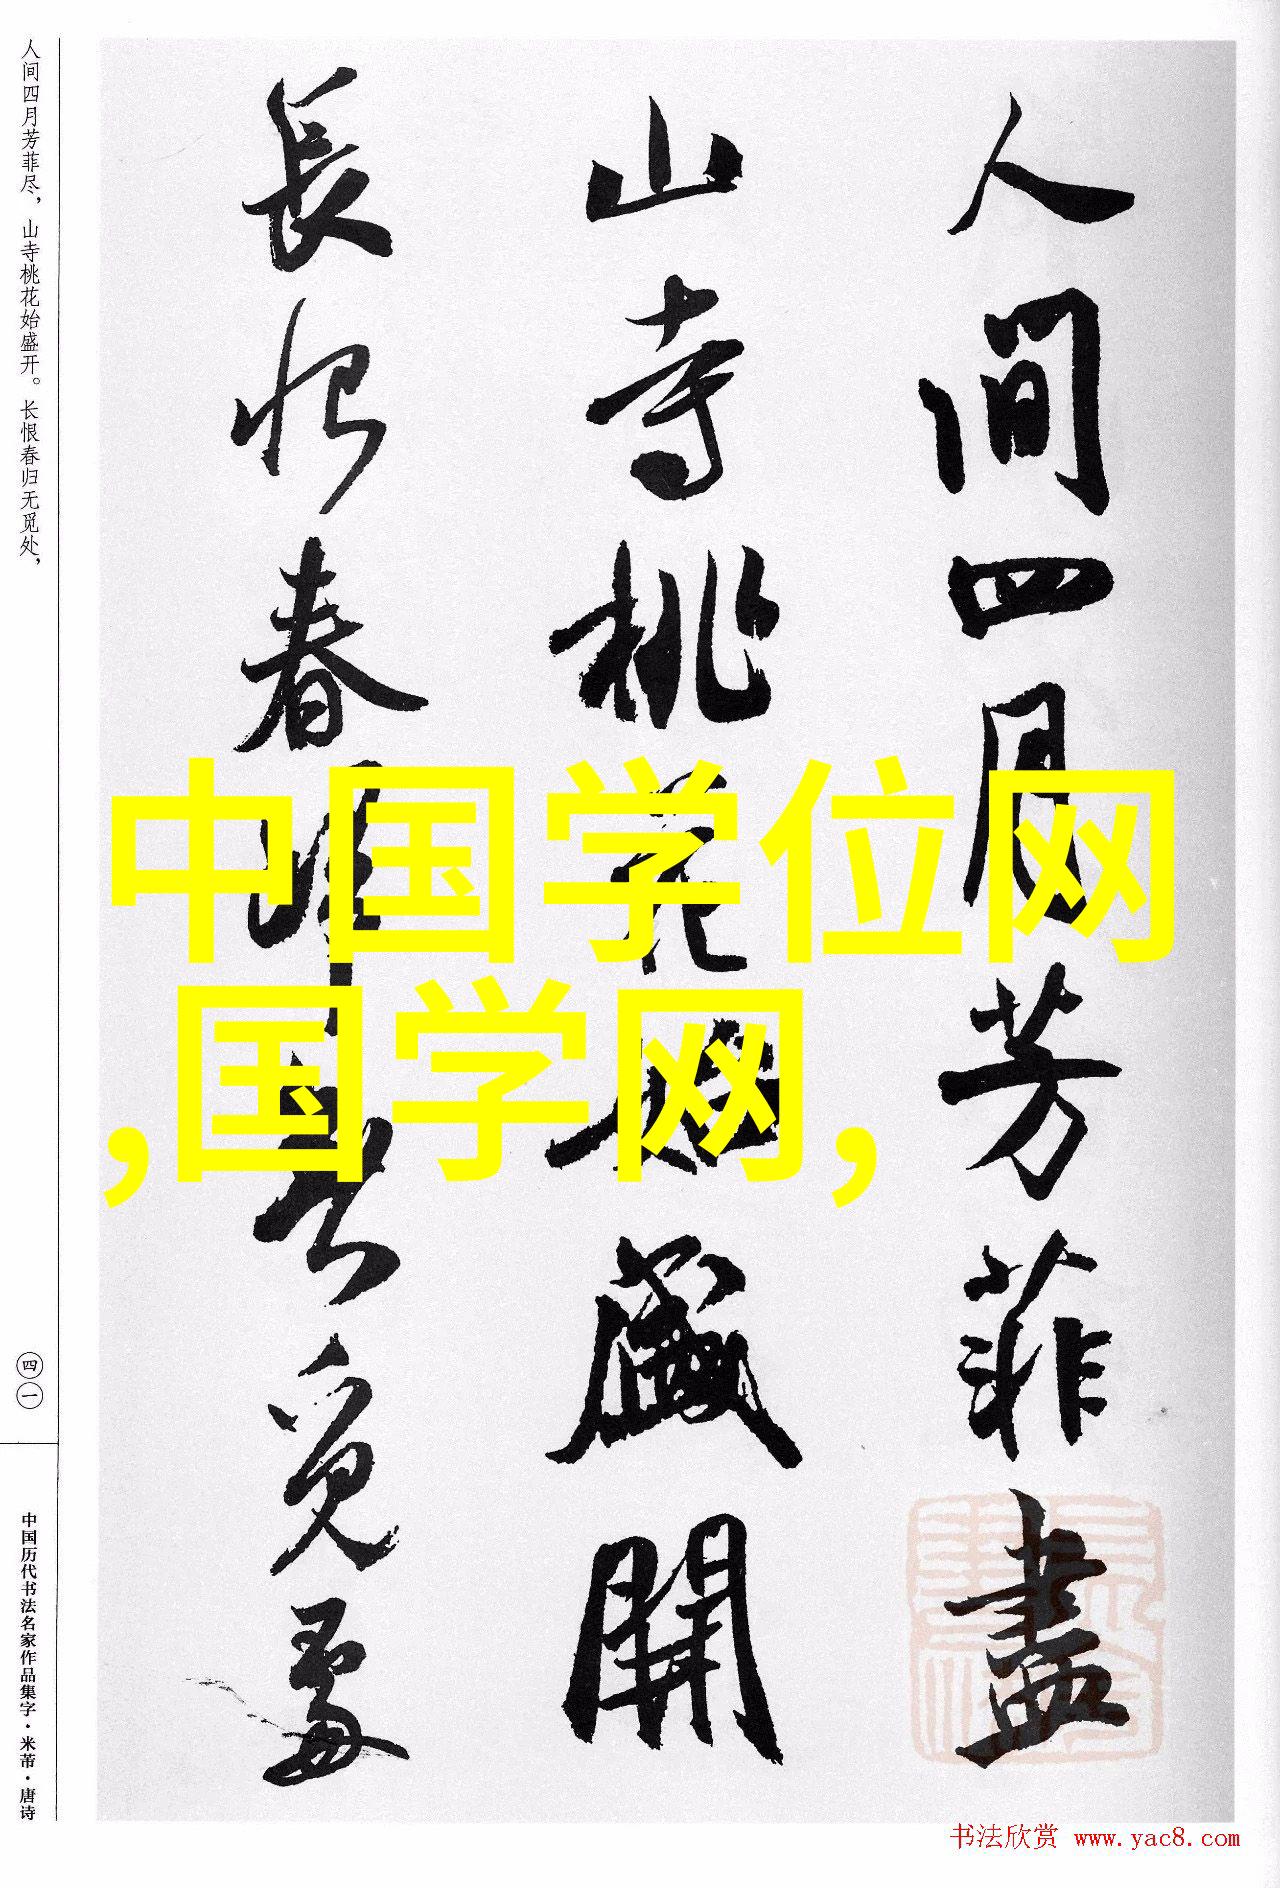 人间四月芳菲尽，山寺桃花始盛开。长恨春归无觅处，
人間四月芳菲盡
山寺桃花始盛開
長恨春歸無覓處
中国学位网
,国学网,
四一
中国历代书法名家作品集字·米芾·唐诗
书法欣赏 www.yac8.com